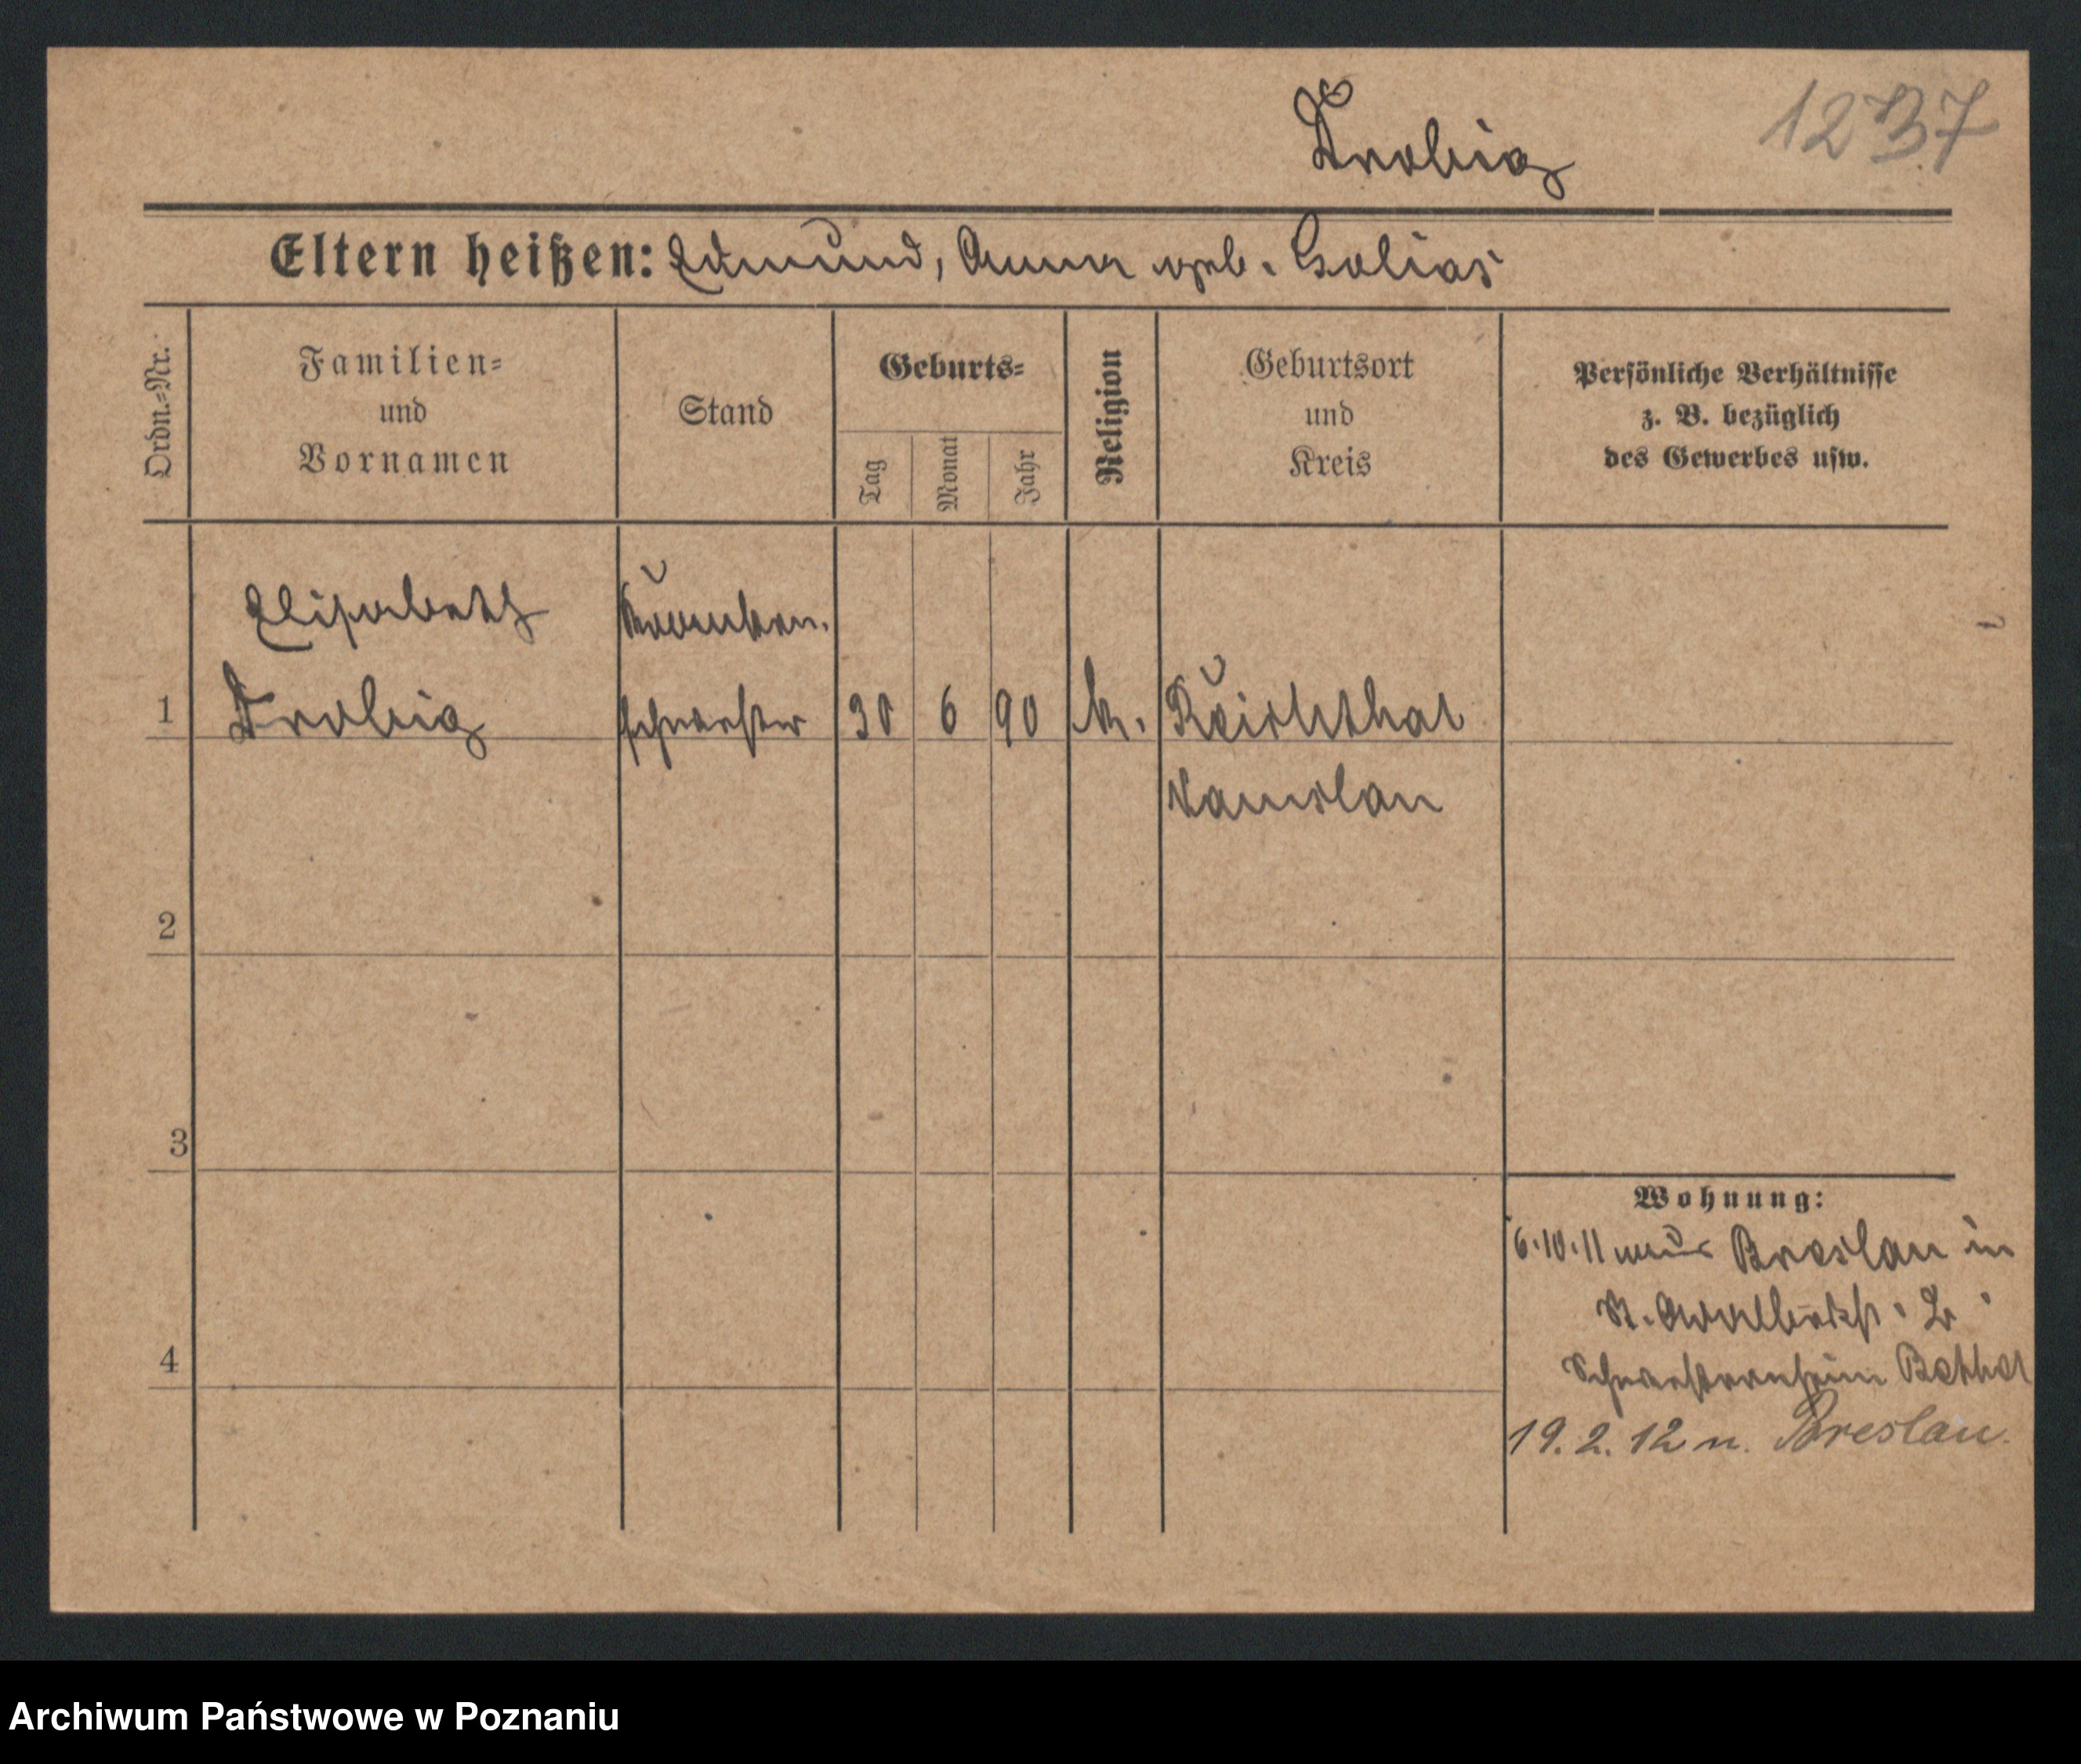 Drobig
1237
Eltern heißen: Edmund, Anna geb. Golias
Ordn.-Nr.
Familien-
und
Vornamen
Stand
Geburts-
Tag
Monat
Jahr
Religion
Geburtsort
und
Kreis
Persönliche Verhältnisse
z. B. bezüglich
des Gewerbes usw.
Elisabeth
Kranken-
1 Drobig schwester 30 6 90 k. Reichthal
Namslau
2
3
4
Wohnung:
6.10.11 aus Breslau in
St. Adalbertst. 2
Schwesternheim Bethel
19.2.12 n. Breslau.
Archiwum Państwowe w Poznaniu